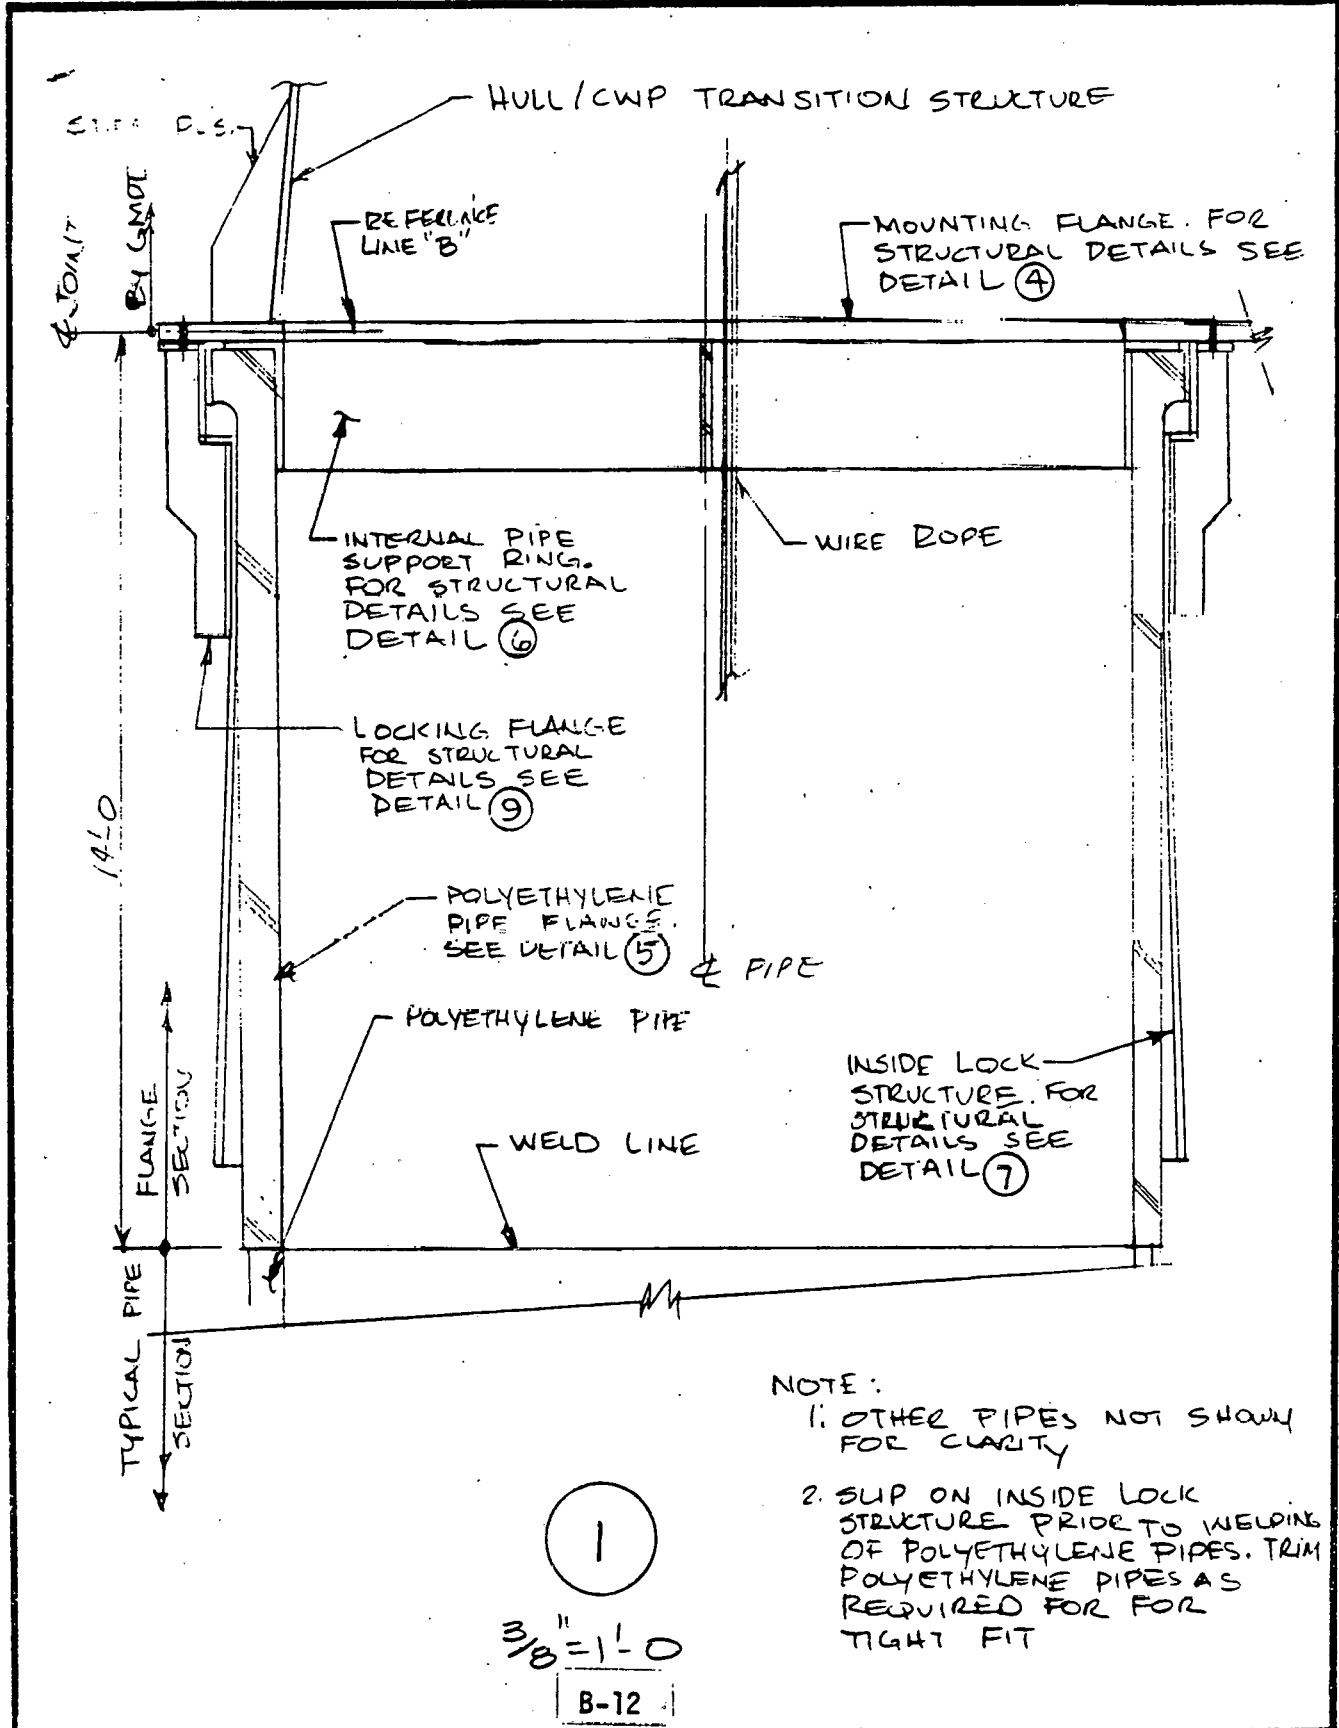 HULL/CWP TRANSITION STRUCTURE
REFERENCE
LINE "B"
MOUNTING FLANGE. FOR
STRUCTURAL DETAILS SEE
DETAIL 4
℄ JOINT
BY GMDI
INTERNAL PIPE
SUPPORT RING.
FOR STRUCTURAL
DETAILS SEE
DETAIL 6
WIRE ROPE
LOCKING FLANGE
FOR STRUCTURAL
DETAILS SEE
DETAIL 9
14'-0
POLYETHYLENE
PIPE FLANGE.
SEE DETAIL 5
℄ PIPE
POLYETHYLENE PIPE
INSIDE LOCK
STRUCTURE. FOR
STRUCTURAL
DETAILS SEE
DETAIL 7
WELD LINE
FLANGE
SECTION
TYPICAL PIPE
SECTION
NOTE:
1. OTHER PIPES NOT SHOWN
FOR CLARITY
2. SLIP ON INSIDE LOCK
STRUCTURE PRIOR TO WELDING
OF POLYETHYLENE PIPES. TRIM
POLYETHYLENE PIPES AS
REQUIRED FOR FOR
TIGHT FIT
1
3/8"=1'-0
B-12